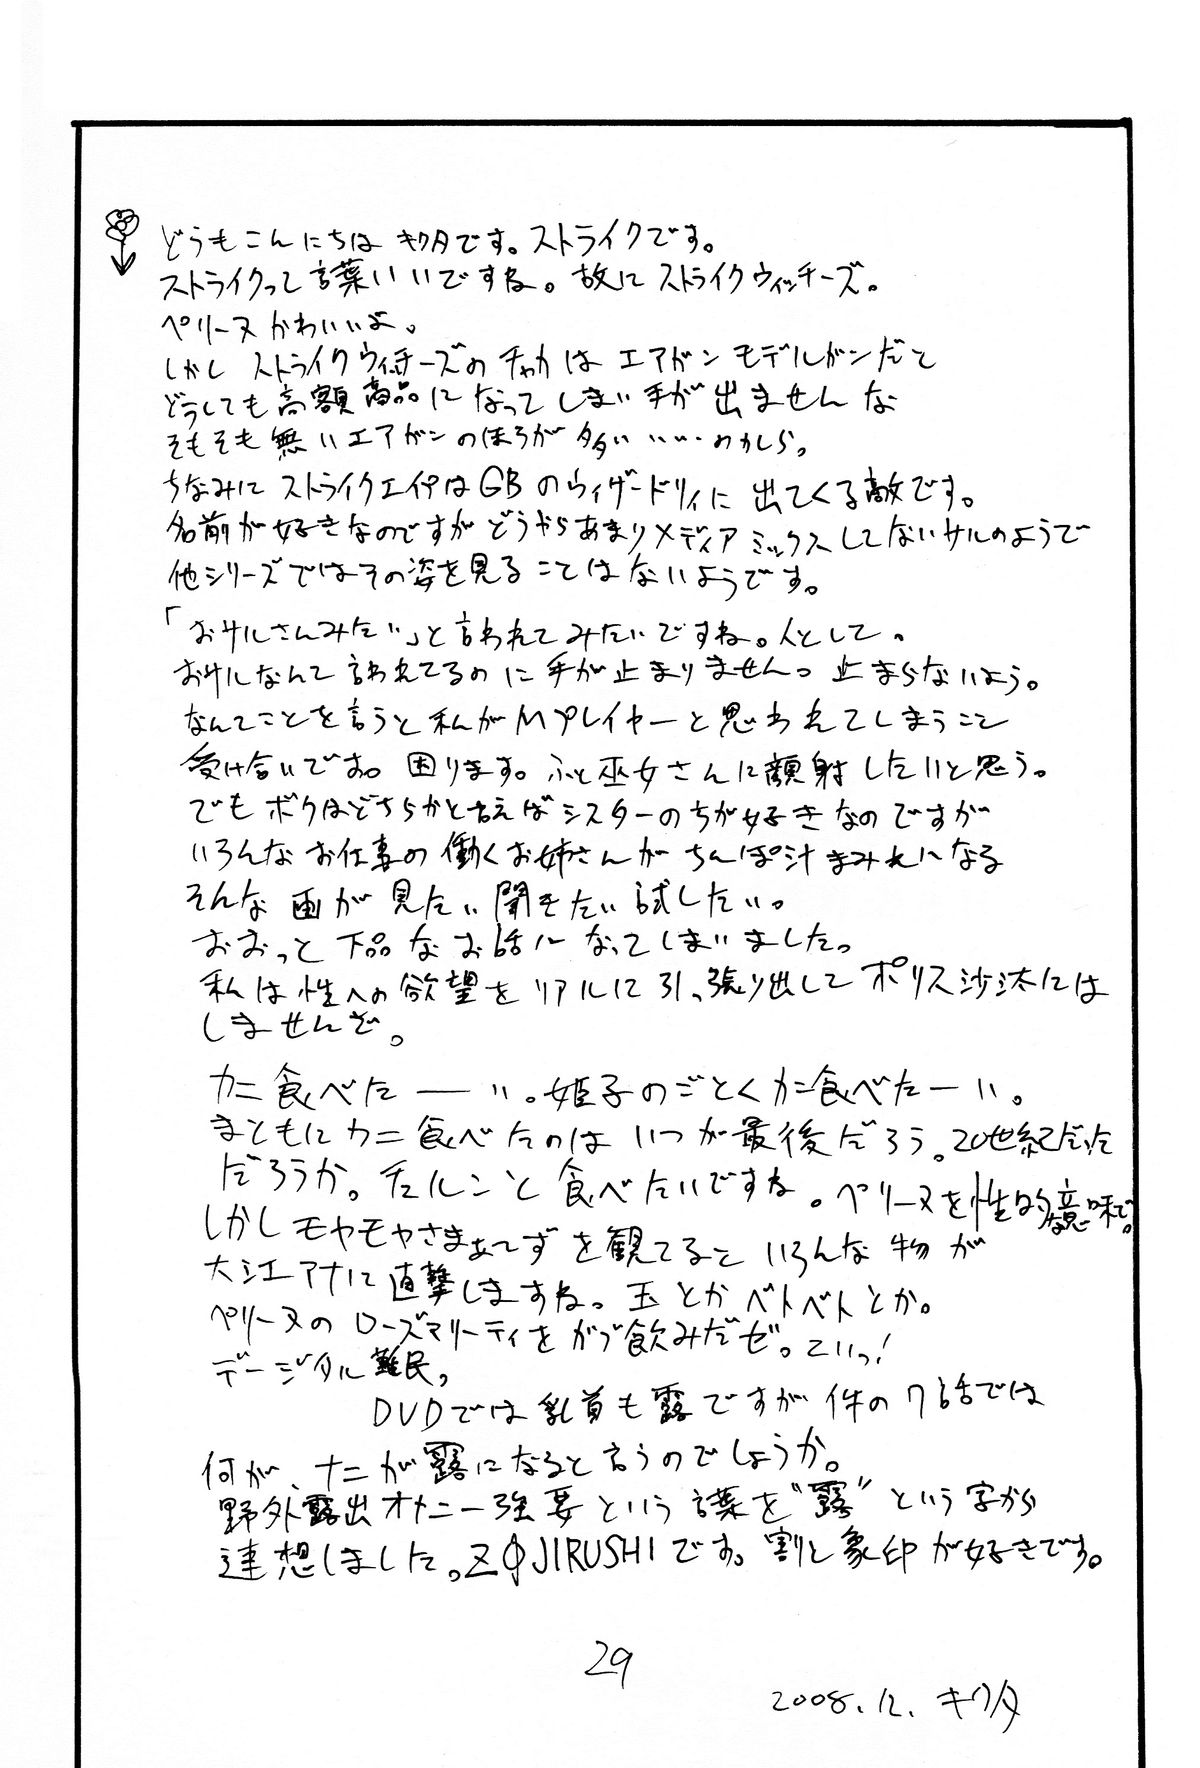 どうもこんにちは キクタです。ストライクです。
ストライクって言葉いいですね。故にストライクウィッチーズ。
ペリーヌかわいいよ。
しかし ストライクウィッチーズのチャカは エアガン モデルガンだと
どうしても高額商品になってしまい手が出ませんな
そもそも無いエアガンのほうが多い・・・・わかしら。
ちなみにストライクエイプはGBのウィザードリィに出てくる敵です。
名前が好きなのですがどうやらあまりメディアミックスしてないサルのようで
他シリーズではその姿を見ることはないようです。
「おサルさんみたい」と言われてみたいですね。人として。
おサルなんて言われてるのに手が止まりませんっ 止まらないよう。
なんてことを言うと私がMプレイヤーと思われてしまうこと
受け合いです。困ります。ふと巫女さんに顔射したいと思う。
でもボクはどちらかと言えばシスターのちが好きなのですが
いろんなお仕事の働くお姉さんがちんぽ汁まみれになる
そんな画が見たい聞きたい試したい。
おおっと下品なお話になってしまいました。
私は性への欲望をリアルに引っ張り出してポリス沙汰には
しませんぞ。
カニ食べたーい。姫子のごとくカニ食べたーい。
まともにカニ食べたのはいつが最後だろう。20世紀だった
だろうか。チュルンと食べたいですね。ペリーヌを性的な意味で。
しかしモヤモヤさまぁ〜ずを観てるといろんな物が
大江アナに直撃しますね。玉とかベトベトとか。
ペリーヌのローズマリーティをがぶ飲みだぜ。こいっ!
デージタル難民。
DVDでは乳首も露ですが件の7話では
何が、ナニが露になると言うのでしょうか。
野外露出オナニー強要という言葉を"露"という字から
連想しました。ZOJIRUSHIです。割と象印が好きです。
29
2008.12. キクタ